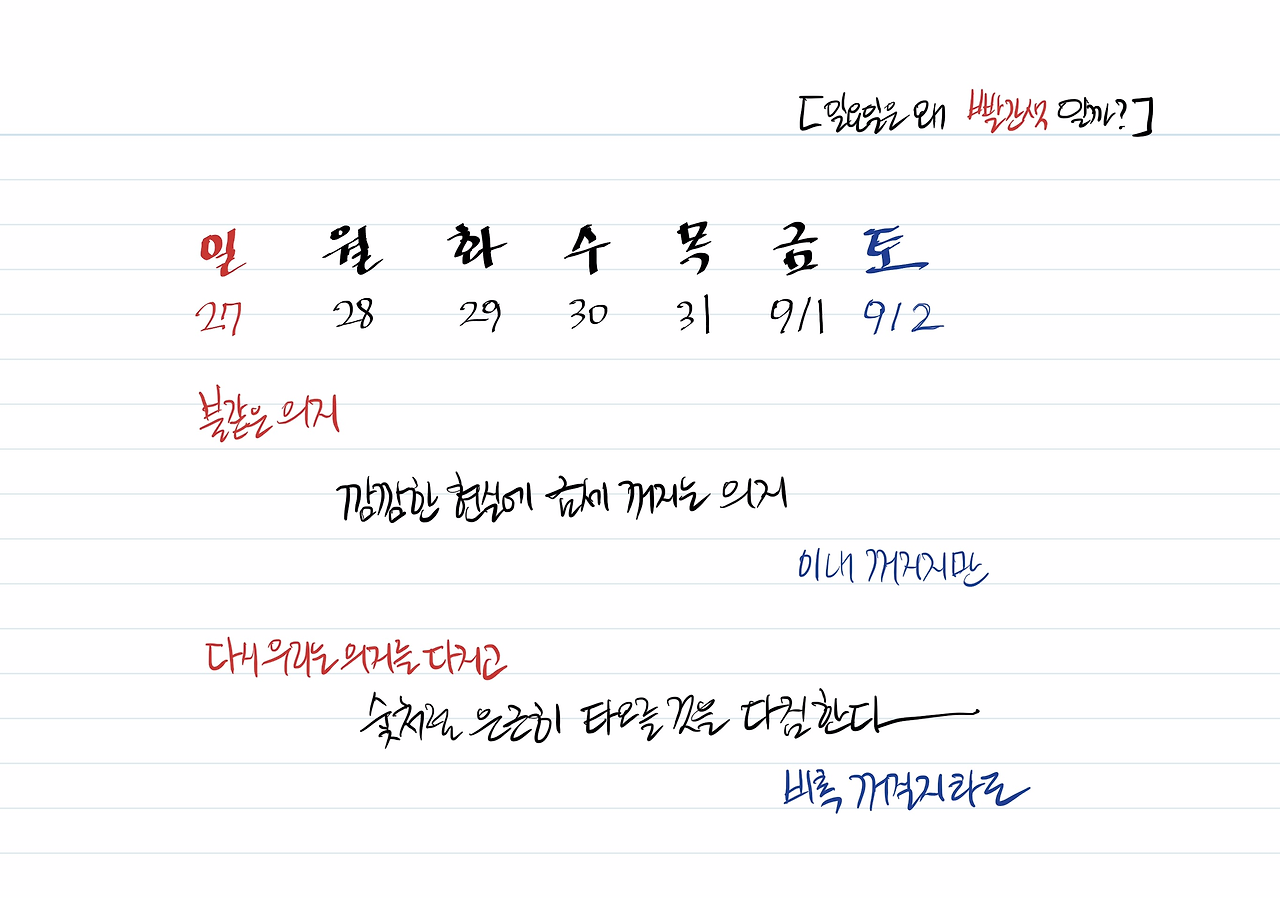 [일요일은 왜 빨간색 일까?]
일 월 화 수 목 금 토
27 28 29 30 31 9/1 9/2
불같은 의지
깜깜한 현실에 금세 꺼지는 의지
이내 꺼지지만
다시 우리는 의지를 다지고
숯처럼 은근히 타오를 것을 다짐한다
비록 꺼질지라도